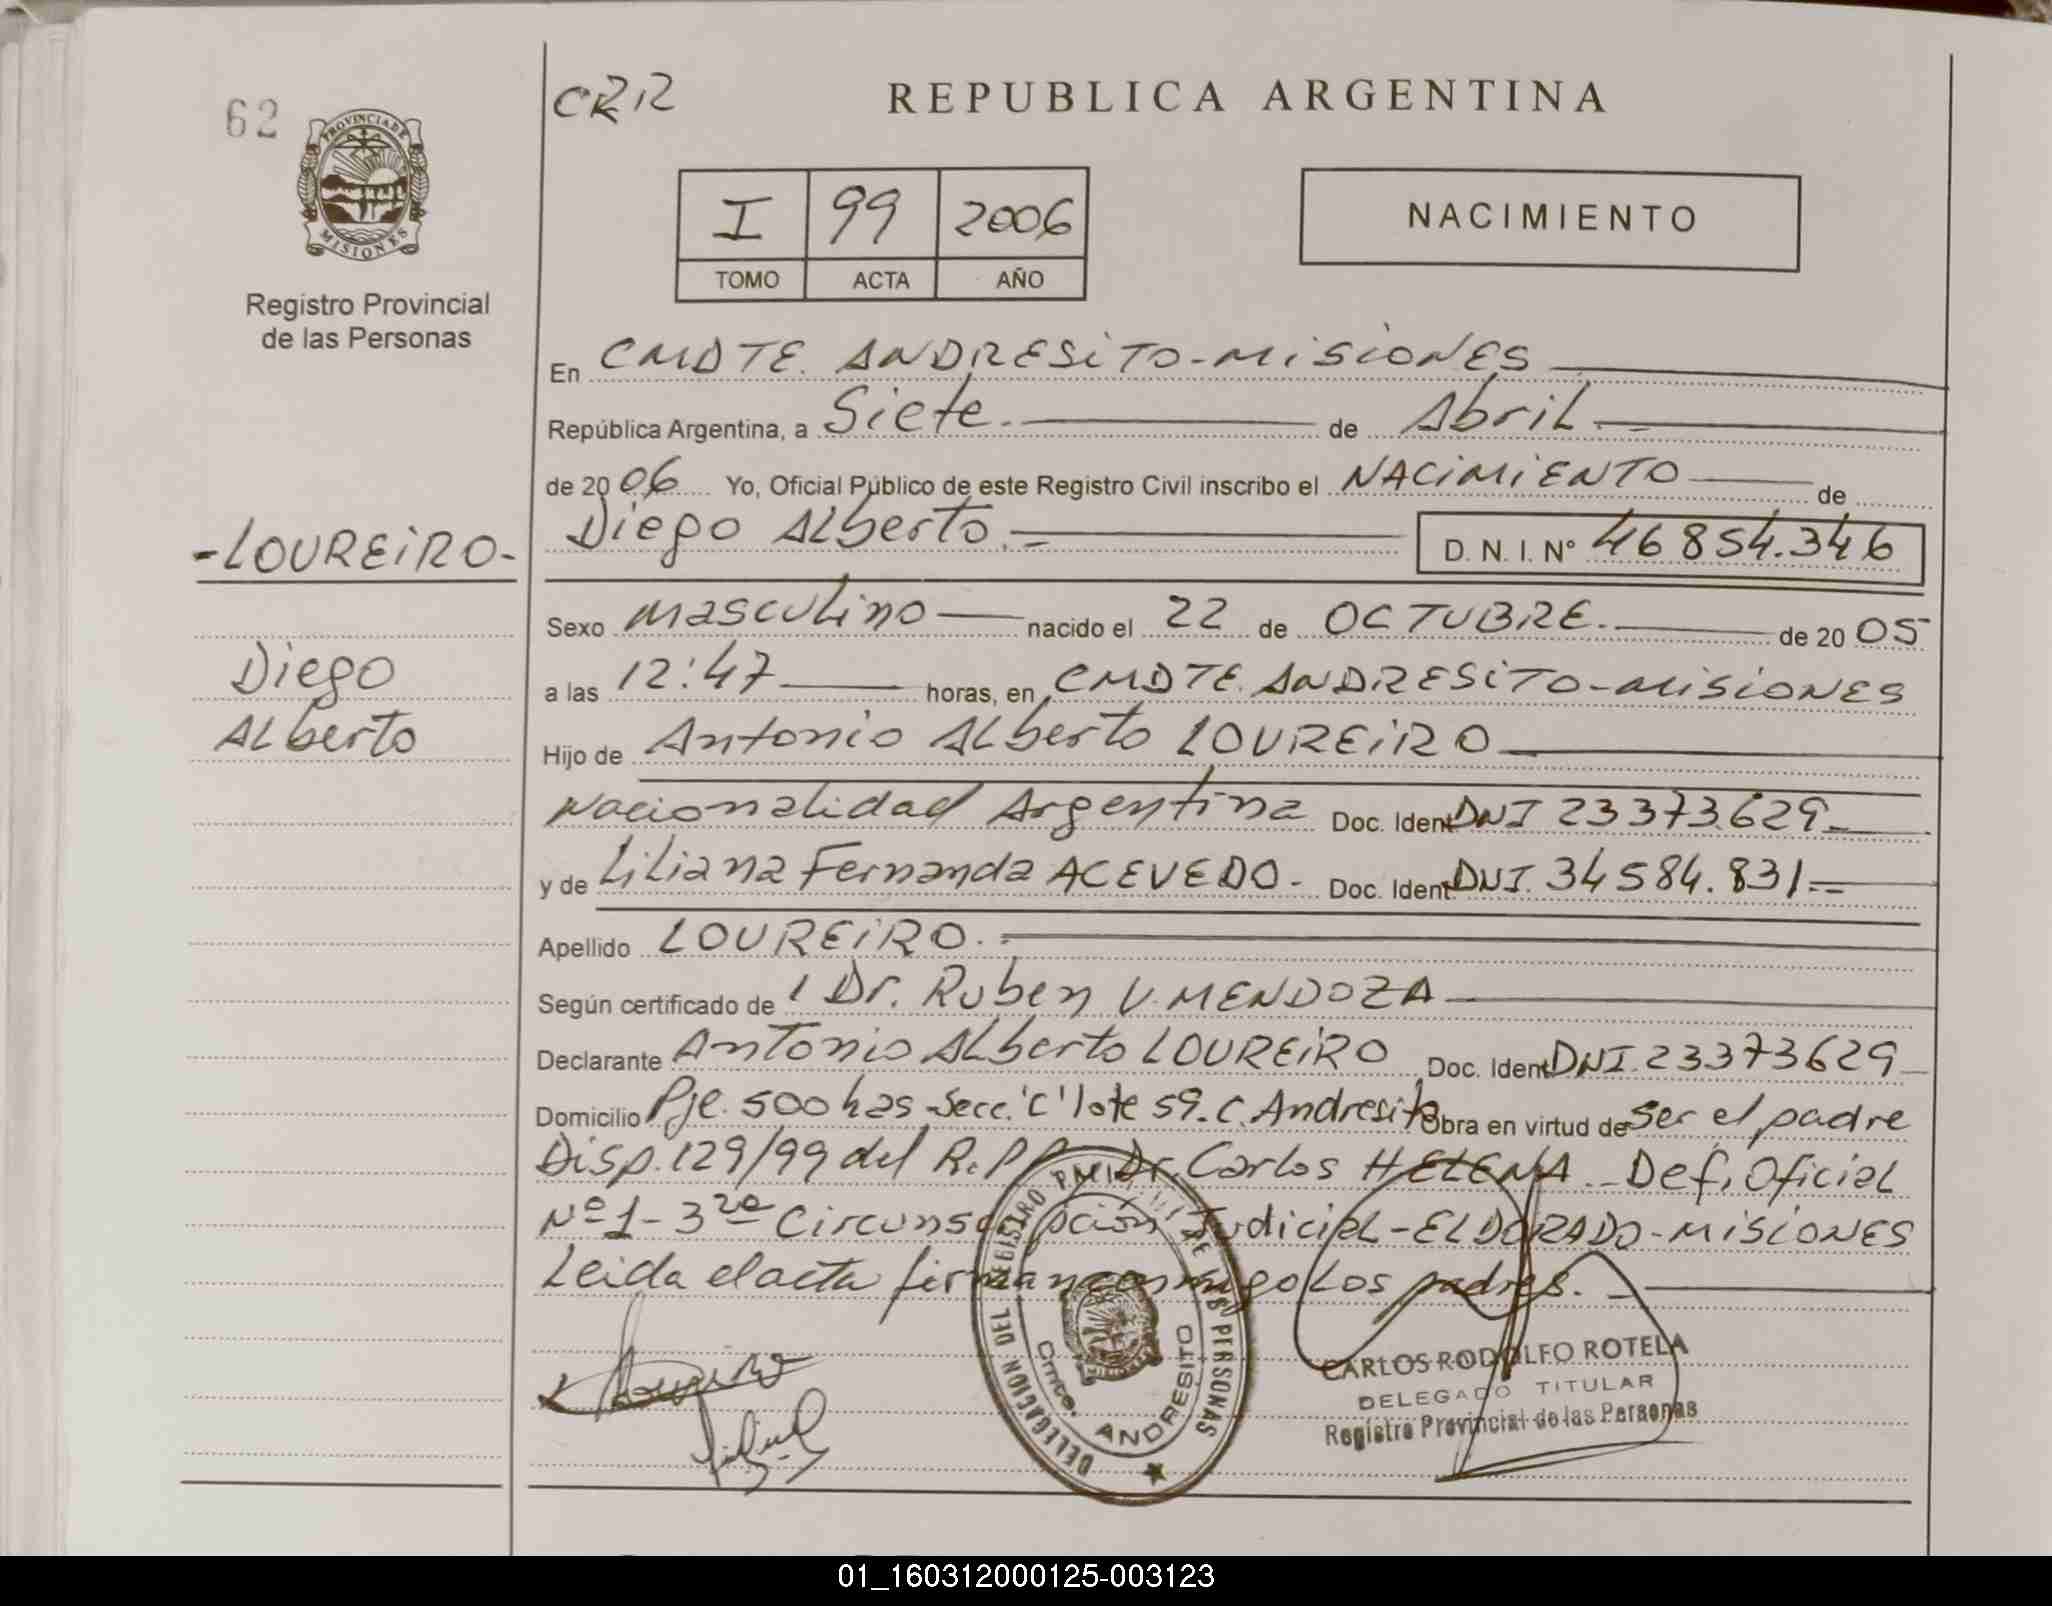 62
CRR
REPUBLICA ARGENTINA
PROVINCIA DE
MISIONES
Registro Provincial
de las Personas
I 99 2006
TOMO ACTA AÑO
NACIMIENTO
En CMDTE. ANDRESiTO-MiSiONES
República Argentina, a Siete. de Abril.
de 2006 Yo, Oficial Público de este Registro Civil inscribo el NACiMiENTO de
Diego Alberto. D. N. I. N° 46 854.346
-LOUREiRO-
Diego
Alberto
Sexo masculino nacido el 22 de OCTUBRE. de 2005
a las 12:47 horas, en CMDTE. ANDRESiTO-MiSiONES
Hijo de Antonio Alberto LOUREiRO
Nacionalidad Argentina Doc. Ident DNI 23373.629-
y de Liliana Fernanda ACEVEDO- Doc. Ident DNI. 34584.831.-
Apellido LOUREiRO.
Según certificado de Dr. Ruben V. MENDOZA
Declarante Antonio Alberto LOUREiRO Doc. Ident DNI. 23373629
Domicilio Pje. 500 has Secc. 'C' lote 59. C. Andresito Obra en virtud de Ser el padre
Disp. 129/99 del R.P.P. Dr. Carlos HELENA - Def. Oficial
Nº 1 - 3ra Circunscripción Judicial - ELDORADO - MiSiONES
Leida el acta firman conmigo Los padres.
DELEGACION DEL REGISTRO DE LAS PERSONAS
Cmte. ANDRESITO
CARLOS RODOLFO ROTELA
DELEGADO TITULAR
Registro Provincial de las Personas
01_160312000125-003123